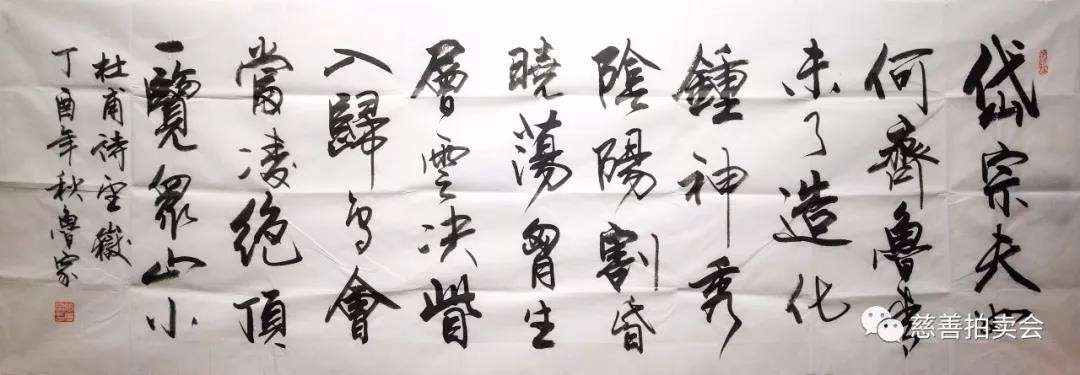 岱宗夫如
何齊魯青
未了造化
鍾神秀
陰陽割昏
曉蕩胷生
層雲决眥
入歸鸟會
當凌絶頂
一覽眾山小
杜甫诗望嶽
丁酉年秋魯家
慈善拍卖会